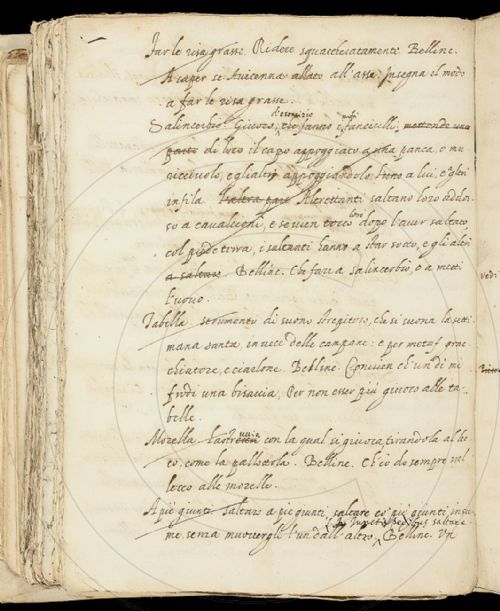 Far le risa grasse. Ridere squaccheratamente. Bellinc.
A saper se Avicenna allato all'asse Insegna el modo
a far le risa grasse.
Salincerbio. Giuoco, d'esercizio che fanno e fanciulli, mettendo una
parte di loro il capo appoggiato a una panca, o mu
ricciuolo, e gl'altri appoggiandolo a lui, e gl'altri
in fila. L'altra parte Alcrettanti saltano loro addos
so a cavalcioni, e se vien tocco loro dopo l'aver saltato
col piede terra, i saltanti hanno a star sotto, e gli altri
a saltare Bellinc. Che fare a Salincerbio, o a metti
l'uovo.
Tabella. strumento di suono strepitoso, che si suona la setti
mana santa, in vece delle campane: e per metaf. grac
chiatore, e ciarlone. Bellinc. Convien ch'un dì mi
frudi una bisaccia, Per non esser più giuoco alle ta-
belle.
Morella. con la qual si giuoca, tirandola al lec
co, come la pallottola. Bellinc. Ch'io do sempre nel
lecco alle morelle.
A piè giunti. Saltare a piè giunti, saltare co' piè giunti insie
me, senza muovergli l'un dall'altro, saltare Bellinc. Un
vedi